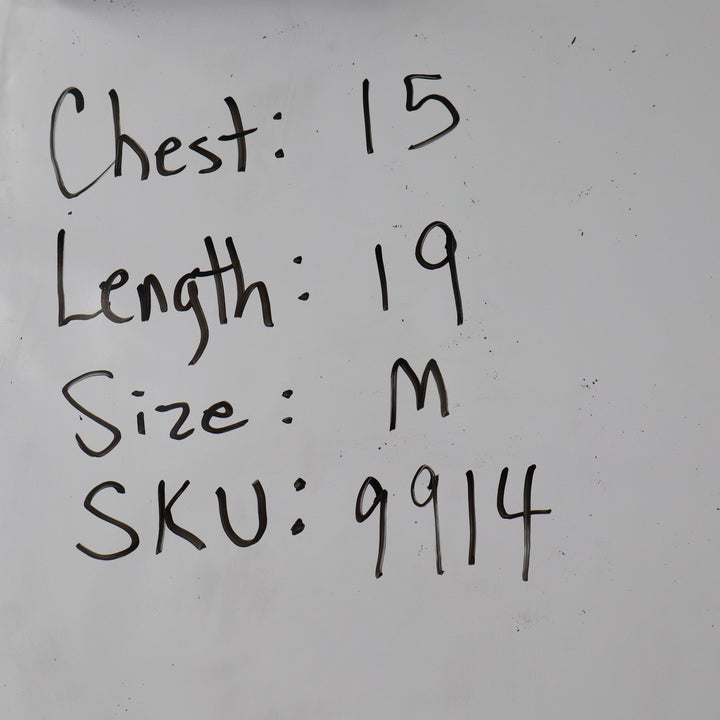 Chest: 15
Length: 19
Size: M
SKU: 9914